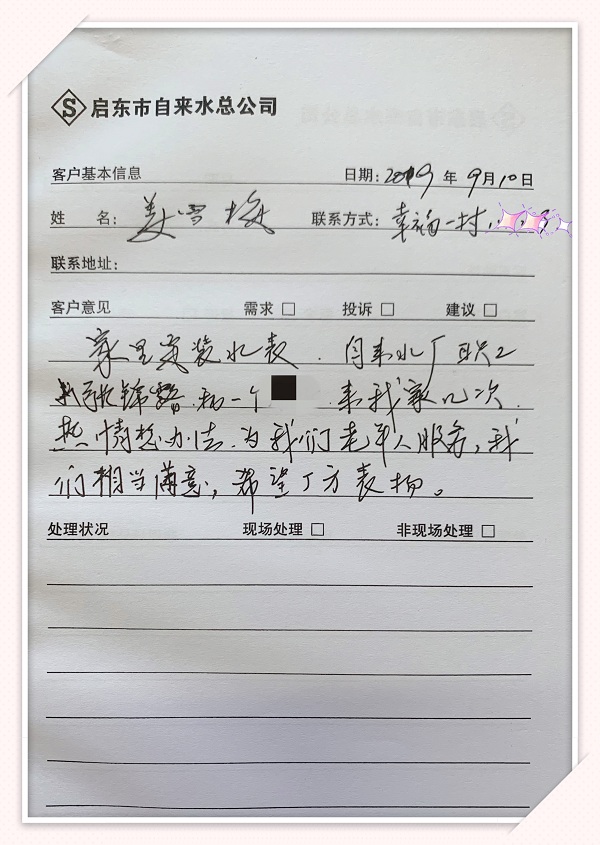 S 启东市自来水总公司
客户基本信息 日期: 2019 年 9月10日
姓 名: 姜雪梅 联系方式: 幸福一村
联系地址:
客户意见 需求 □ 投诉 □ 建议 □
家里安装水表.自来水厂职工
锦 和一个 来我家几次.
热情想办法.为我们老年人服务,我
们相当满意,希望厂方表扬。
处理状况 现场处理 □ 非现场处理 □